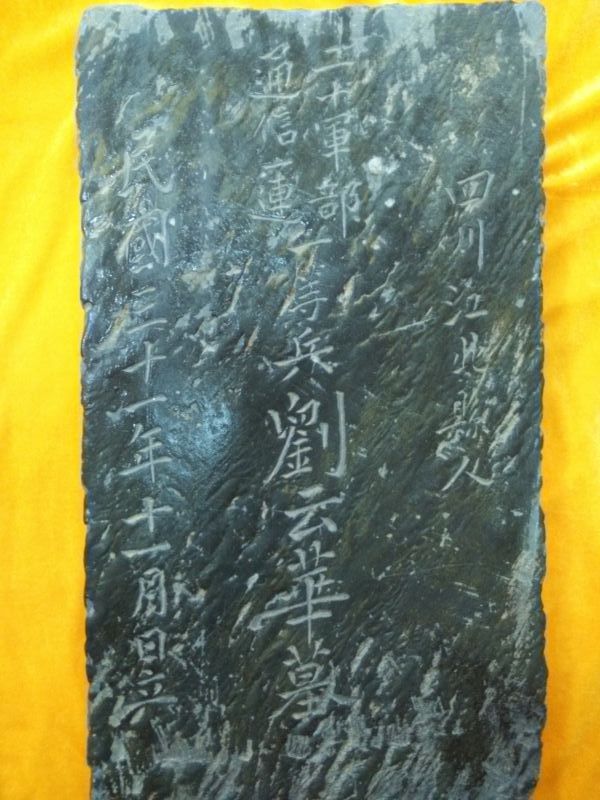 四川江北縣人
二十軍部
通信連
一等兵劉云華墓
民國三十一年十一月日立